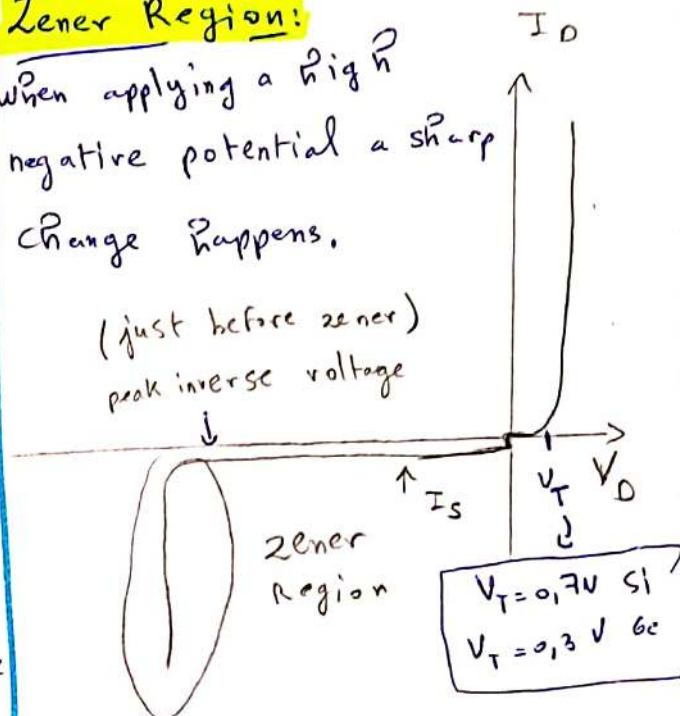 Zener Region:
When applying a high
negative potential a sharp
change happens.
(just before zener)
peak inverse voltage
I_D
I_S
V_T
V_D
Zener
Region
V_T = 0,7V Si
V_T = 0,3 V Ge